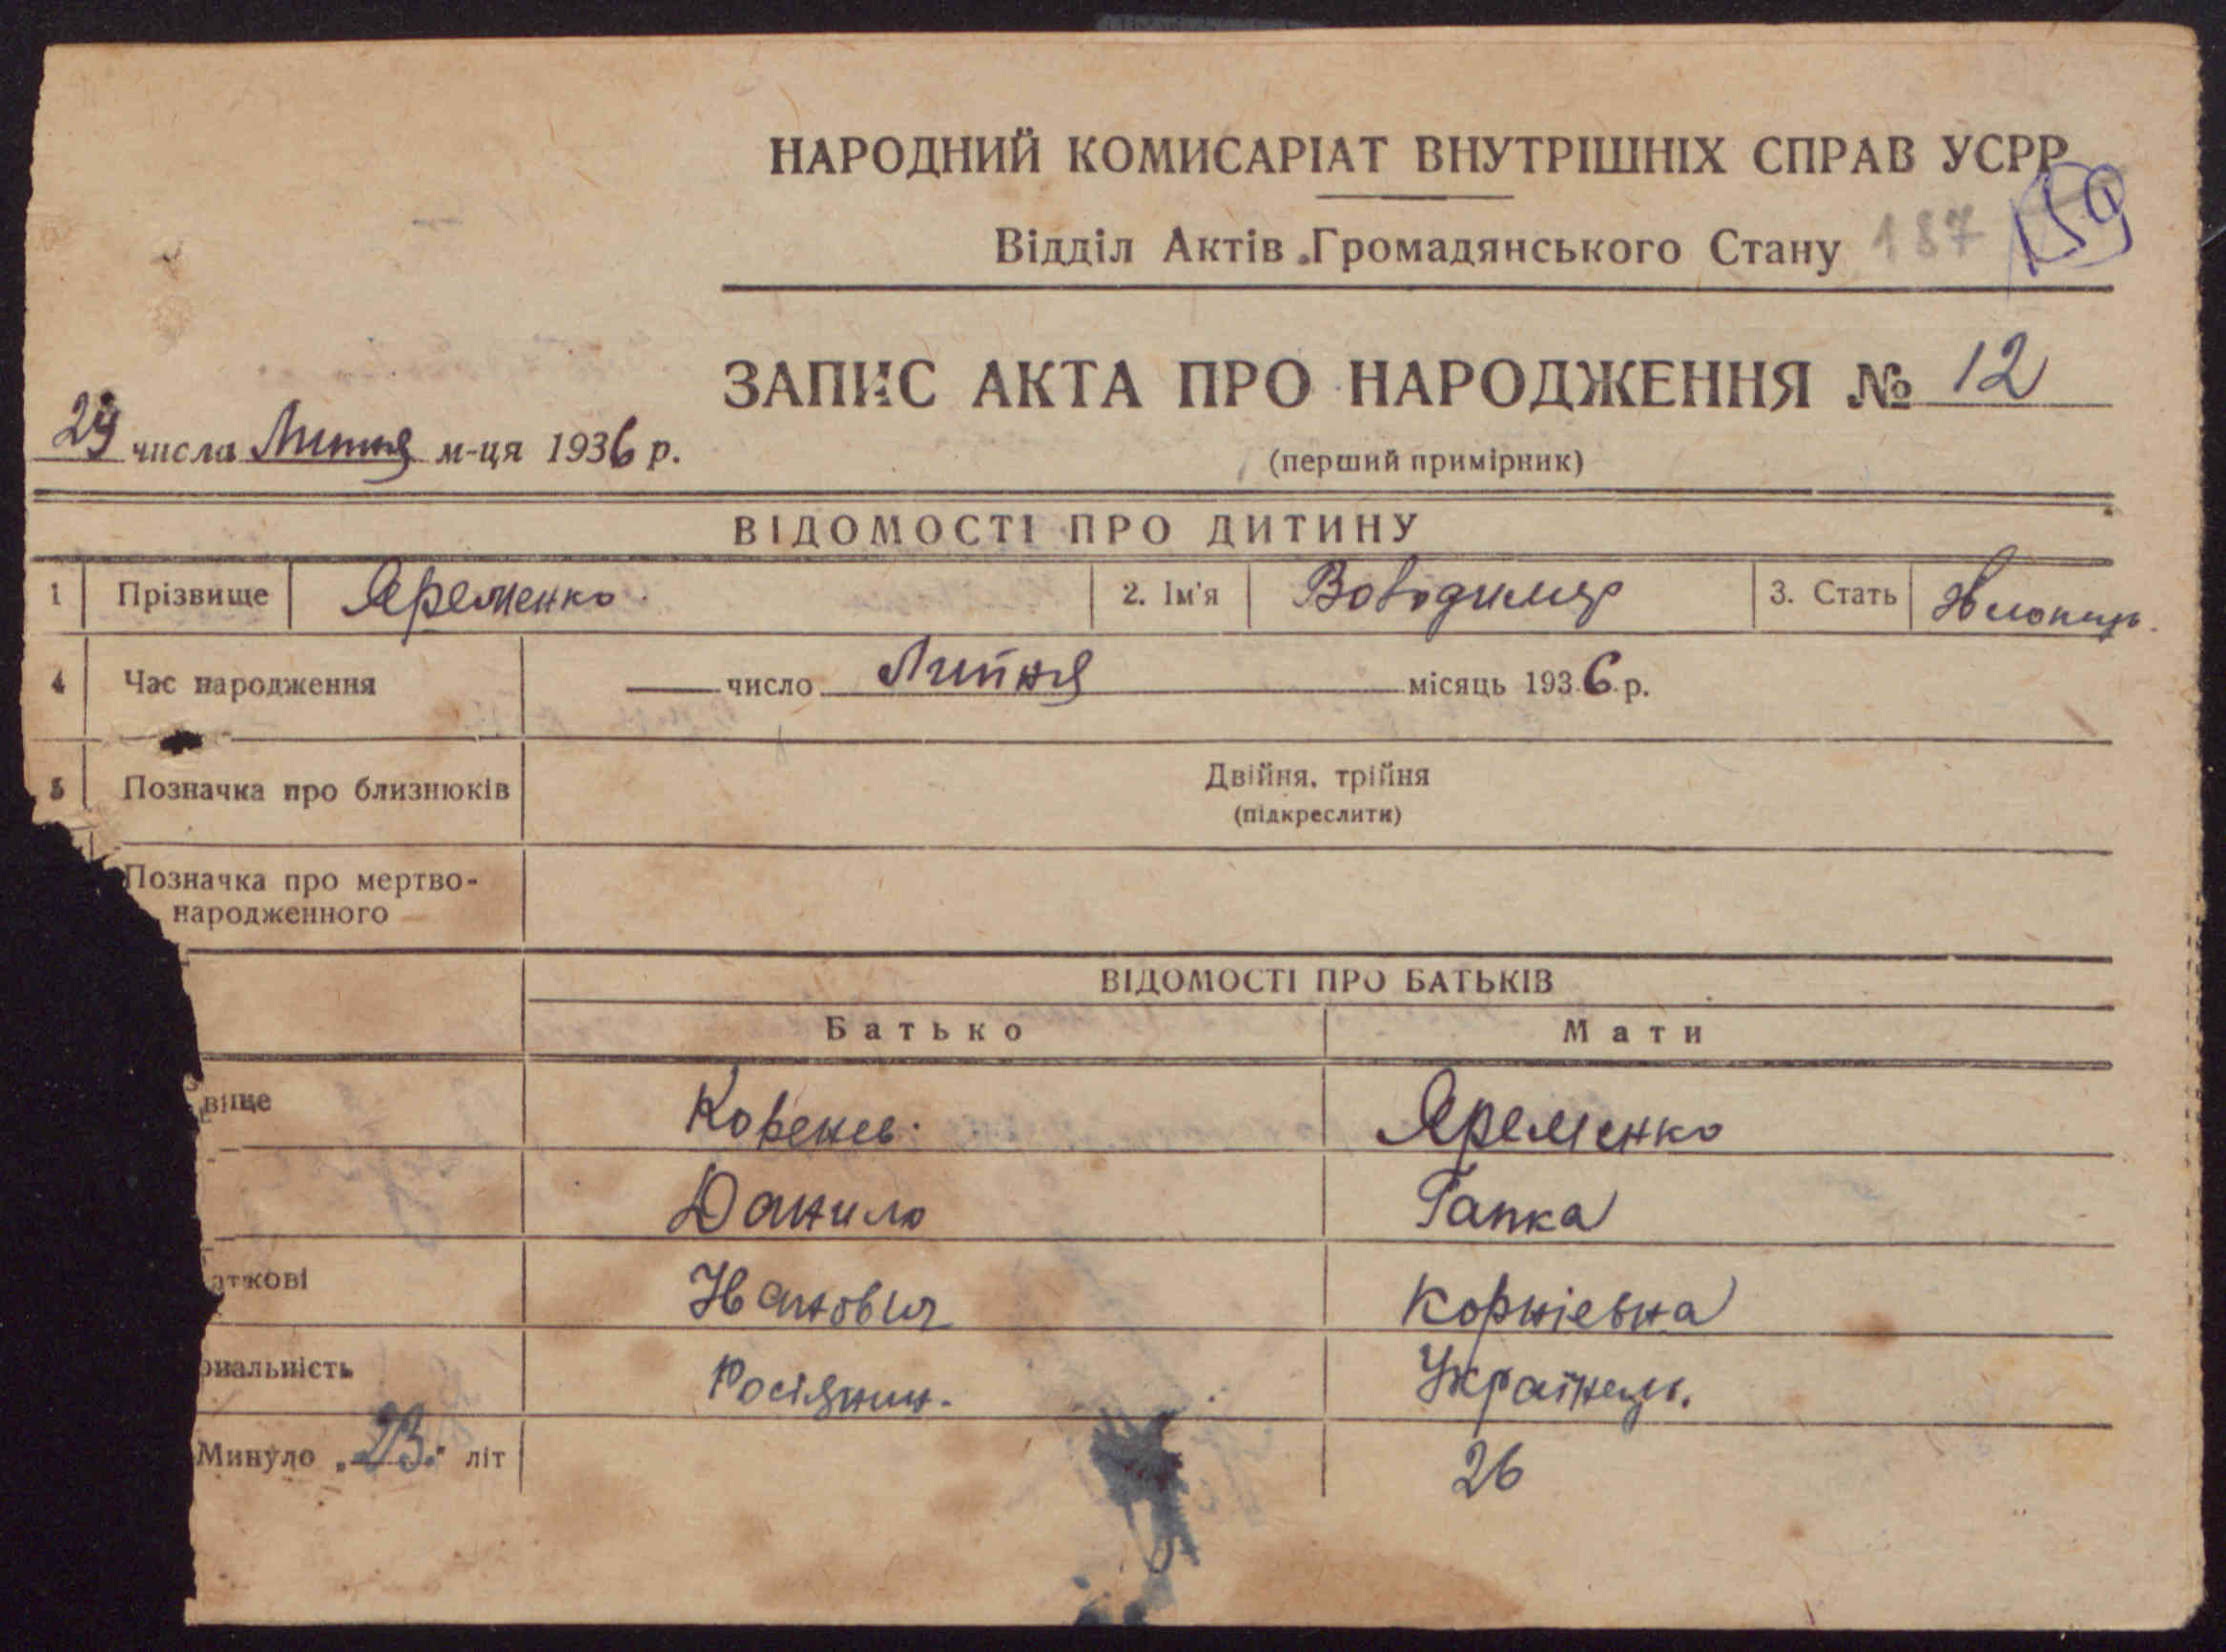 НАРОДНИЙ КОМИСАРІАТ ВНУТРІШНІХ СПРАВ УСРР
159
Відділ Актів Громадянського Стану 187
ЗАПИС АКТА ПРО НАРОДЖЕННЯ № 12
29 числа Липня м-ця 1936 р.
(перший примірник)
ВІДОМОСТІ ПРО ДИТИНУ
1 Прізвище Яременко 2. Ім'я Володимир 3. Стать Хлопець.
4 Час народження число Липня місяць 1936 р.
5 Позначка про близнюків Двійня, трійня
(підкреслити)
Позначка про мертво-
народженного
ВІДОМОСТІ ПРО БАТЬКІВ
Батько Мати
вище Яременко
Данило Гапка
аткові Іванович Корніевна
ональність Росіянин. Українець.
Минуло „23" літ 26